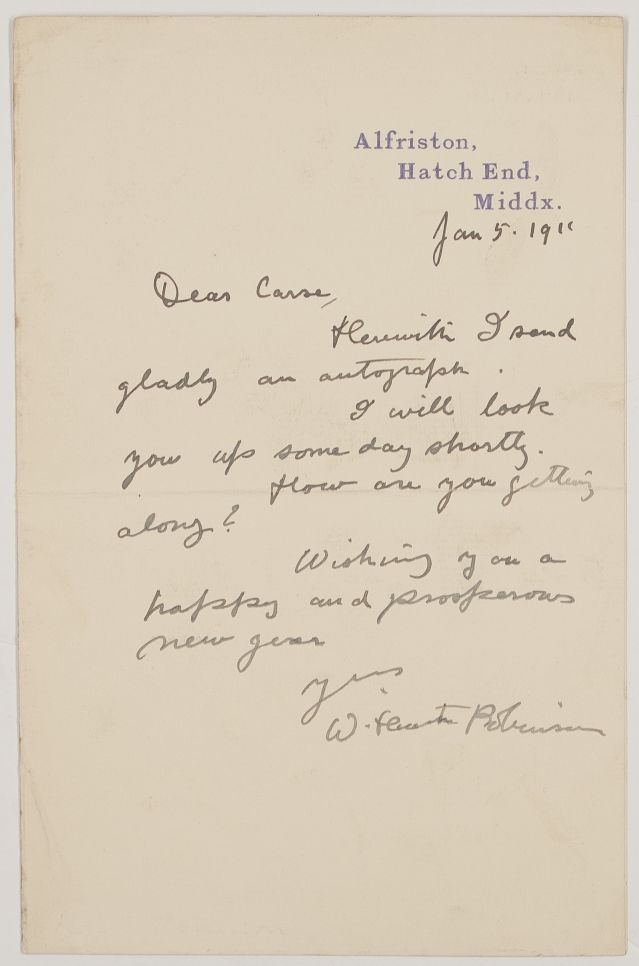 Alfriston,
Hatch End,
Middx.
Jan 5. 1911
Dear Carse,
Herewith I send
gladly an autograph.
I will look
you up some day shortly.
How are you getting
along?
Wishing you a
happy and prosperous
new year
yrs
W. Heath Robinson